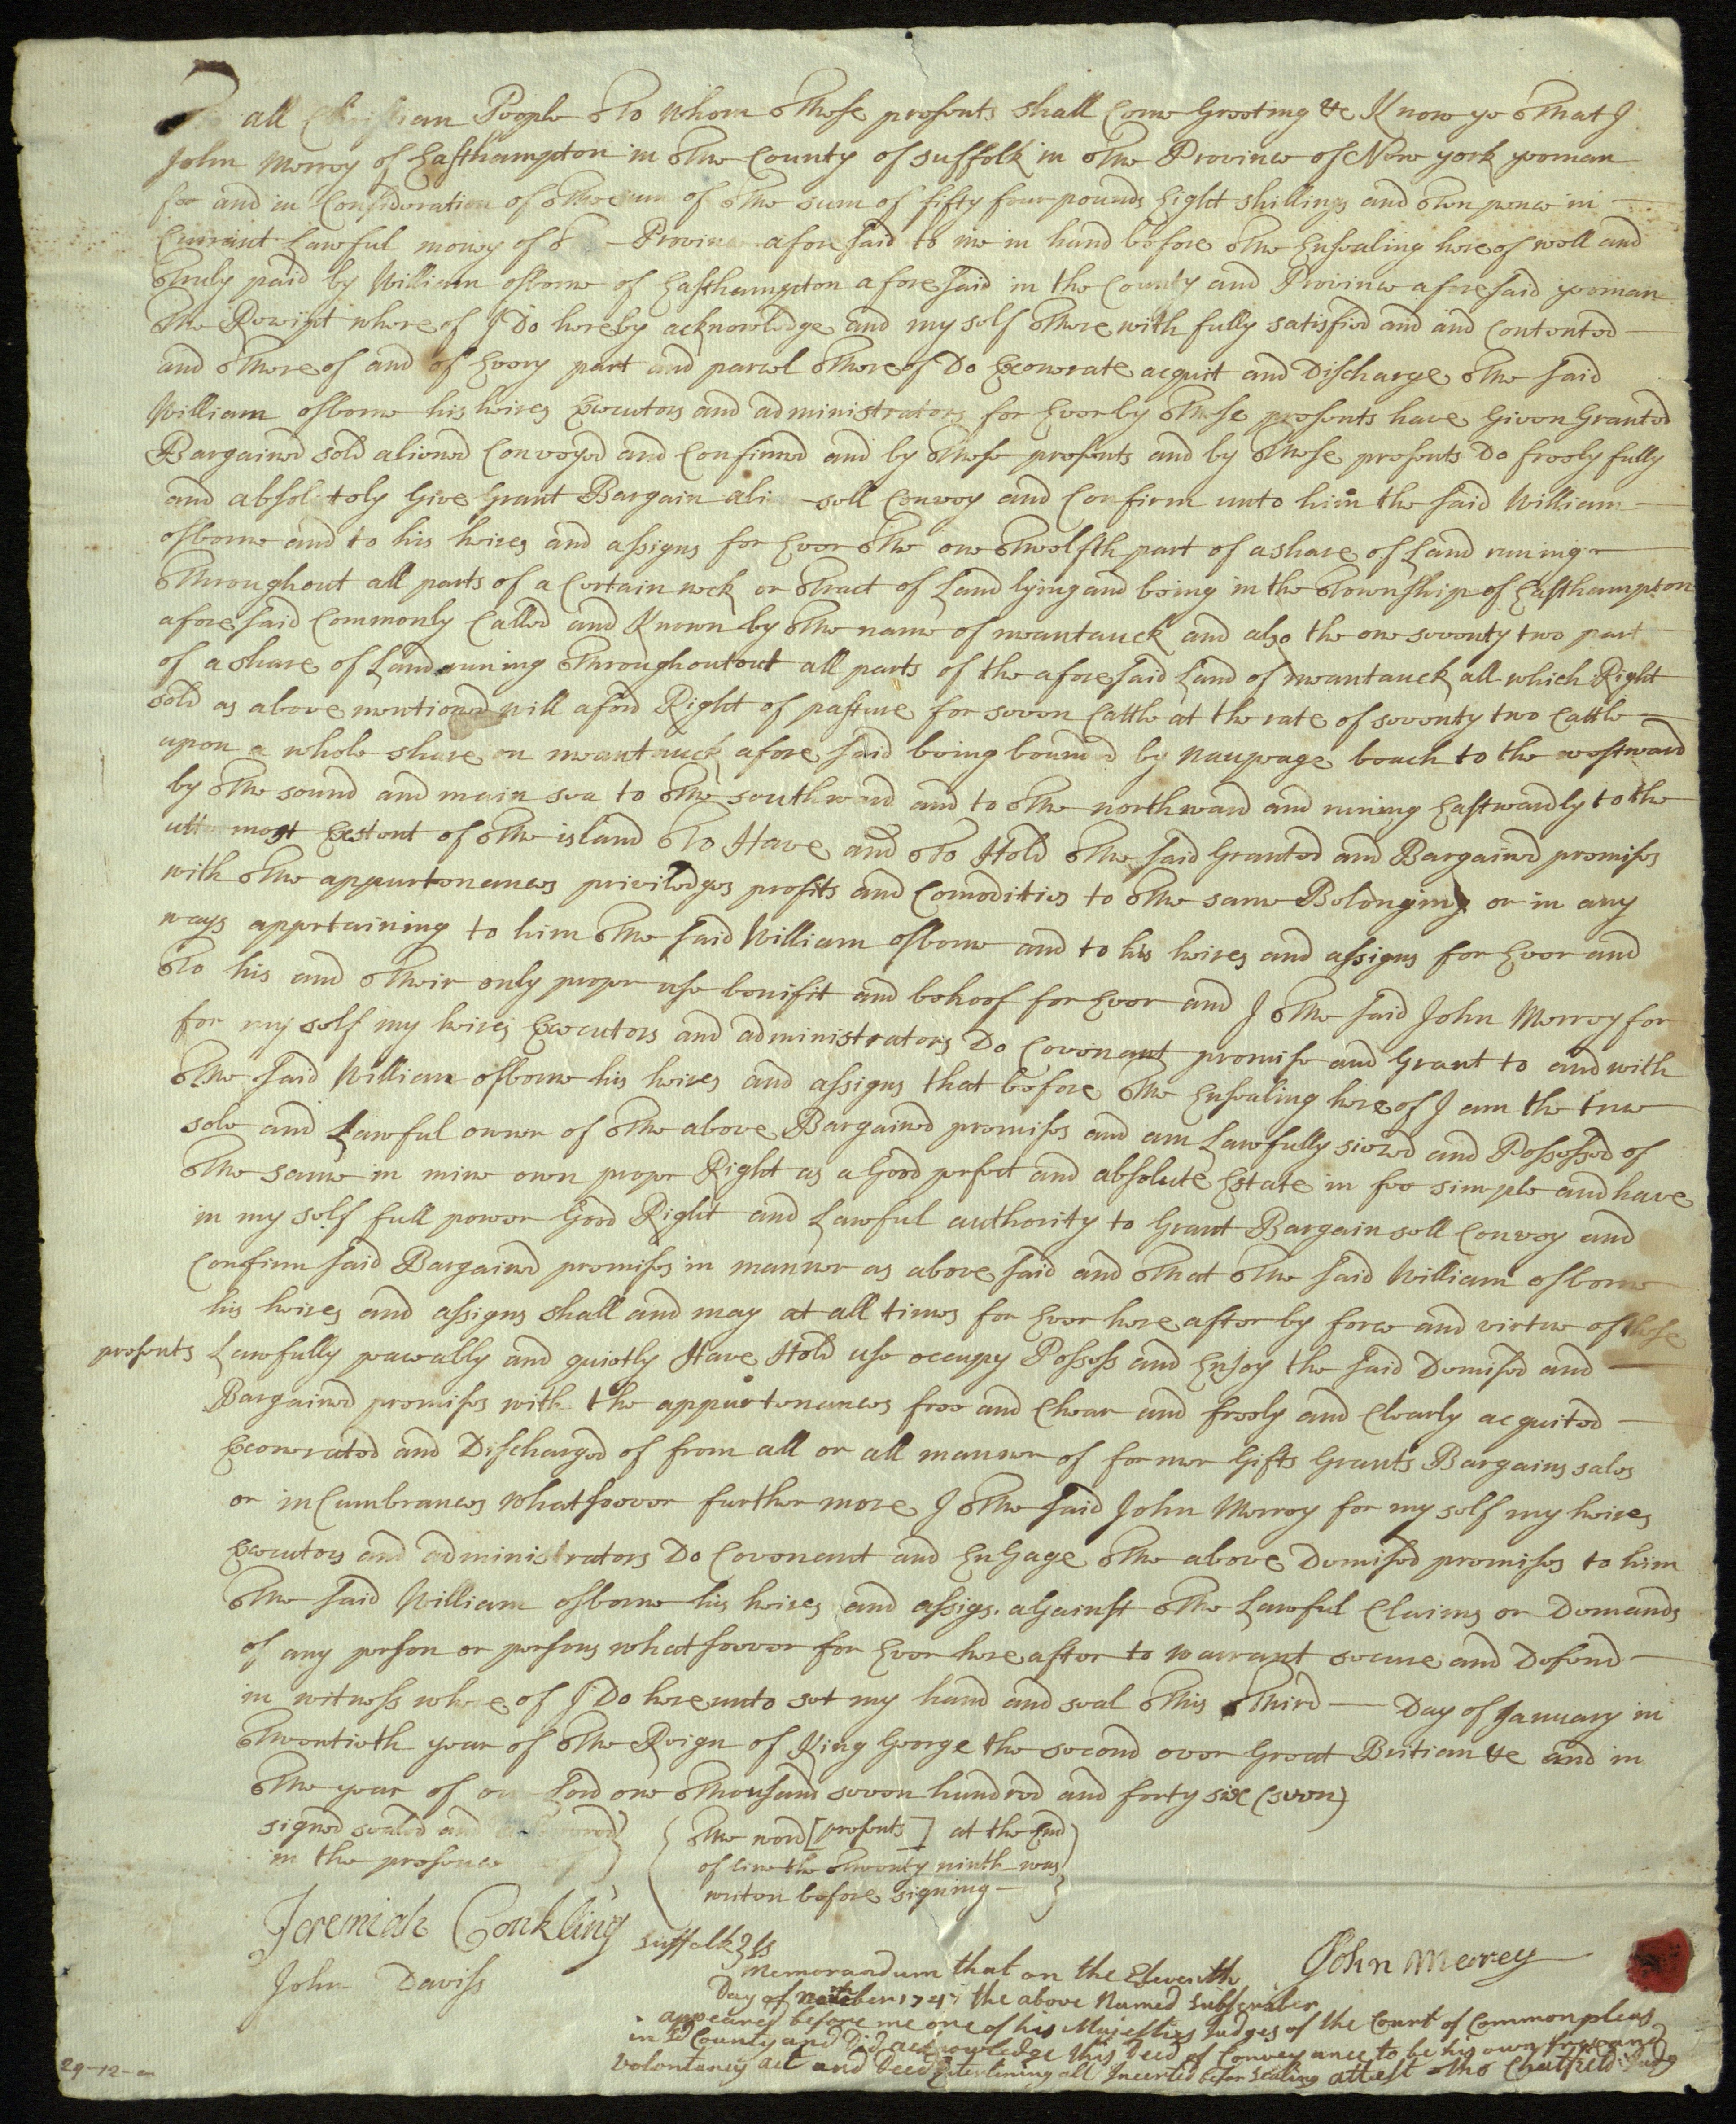 To all Christian People To whom These presents shall Come Greeting &c Know ye That I
John Merrey of Easthampton in The County of Suffolk in The Province of New york yeoman
for and in Consideration of The sum of The sum of fifty four pounds Eight shillings and Ten pence in
Currant Lawful money of Province aforesaid to me in hand before The Ensealing hereof well and
Truly paid by William osborne of Easthampton aforesaid in the County and Province aforesaid yeoman
The Receipt whereof I Do hereby acknowledge and my self There with fully satisfied and and Contented
and Thereof and of Every part and parcel Thereof Do Exonerate acquit and Discharge The said
William osborne his heires Executors and administrators for Ever by These presents have Given Granted
Bargained sold aliened Conveyed and Confirmed and by These presents and by These presents Do freely fully
and absolutely Give Grant Bargain alien sell Convey and Confirm unto him the said William
osborne and to his heires and assigns for Ever The one Twelfth part of a share of Land runing
Throughout all parts of a Certain neck or Tract of Land lying and being in the Township of Easthampton
aforesaid Commonly Called and Known by The name of meantauck and also the one seventy two part
of a share of Land runing Throughoutout all parts of the aforesaid Land of meantauck all which Right
sold as above mentioned will aford Right of pasture for seven Cattle at the rate of seventy two Cattle
upon a whole share on meantauck afore said being bounded by naupeage beach to the westward
by The sound and main sea to The southward and to The northward and runing Eastwardly to the
uttermost Extent of The island To Have and To Hold The said Granted and Bargained premises
with The appurtenances priviledges profits and Comodities to The same Belonging or in any
ways appertaining to him The said William osborne and to his heires and assigns for Ever and
To his and Their only proper use benifit and behoof for Ever and I The said John Merrey for
for my self my heires Executors and administrators Do Covenant promise and Grant to and with
The said William osborne his heires and assigns that before The Ensealing hereof I am the true
sole and Lawful owner of The above Bargained premises and am Lawfully siezed and Possessed of
The same in mine own proper Right as a Good perfect and absolute Estate in fee simple and have
in my self full power Good Right and Lawful authority to Grant Bargain sell Convey and
Confirm said Bargained premises in manner as above said and That The said William osborne
his heires and assigns shall and may at all times for Ever here after by force and virtue of these
presents Lawfully peaceably and quietly Have Hold use occupy Possess and Enjoy the said Demised and
Bargained premises with the appurtenances free and Clear and freely and Clearly acquited
Exonerated and Discharged of from all or all manner of former Gifts Grants Bargains sales
or inCumbrances whatsoever further more I The said John Merrey for my self my heires
Executors and administrators Do Covenant and EnGage The above Demised premises to him
The said William osborne his heires and assigs. aGainst The Lawful Claims or Demands
of any person or persons whatsoever for Ever here after to warrant secure and Defend
in witness whereof I Do hereunto set my hand and seal This Third Day of January in
Twentieth year of The Reign of King George the second over Great Britian &c and in
The year of our Lord one Thousand seven hundred and forty six (seven)
signed sealed and delivered
in the presence of
The word [presents] at the End
of line the Twenty ninth was
writen before signing
Jeremiah Conkling
John Daviss
John Merrey
Suffolk } ss
Memorandum that on the Eleventh
Day of 174 the above Named Subscriber
appeared before me one of his Majesties Judges of the Court of Common pleas
in sd County and Did acknowledge this Deed of Conveyance to be his own free and
Volontarey act and Deed Enterlining all Incerted befor Sealing attest Tho Chatfield Judg
29-12-a